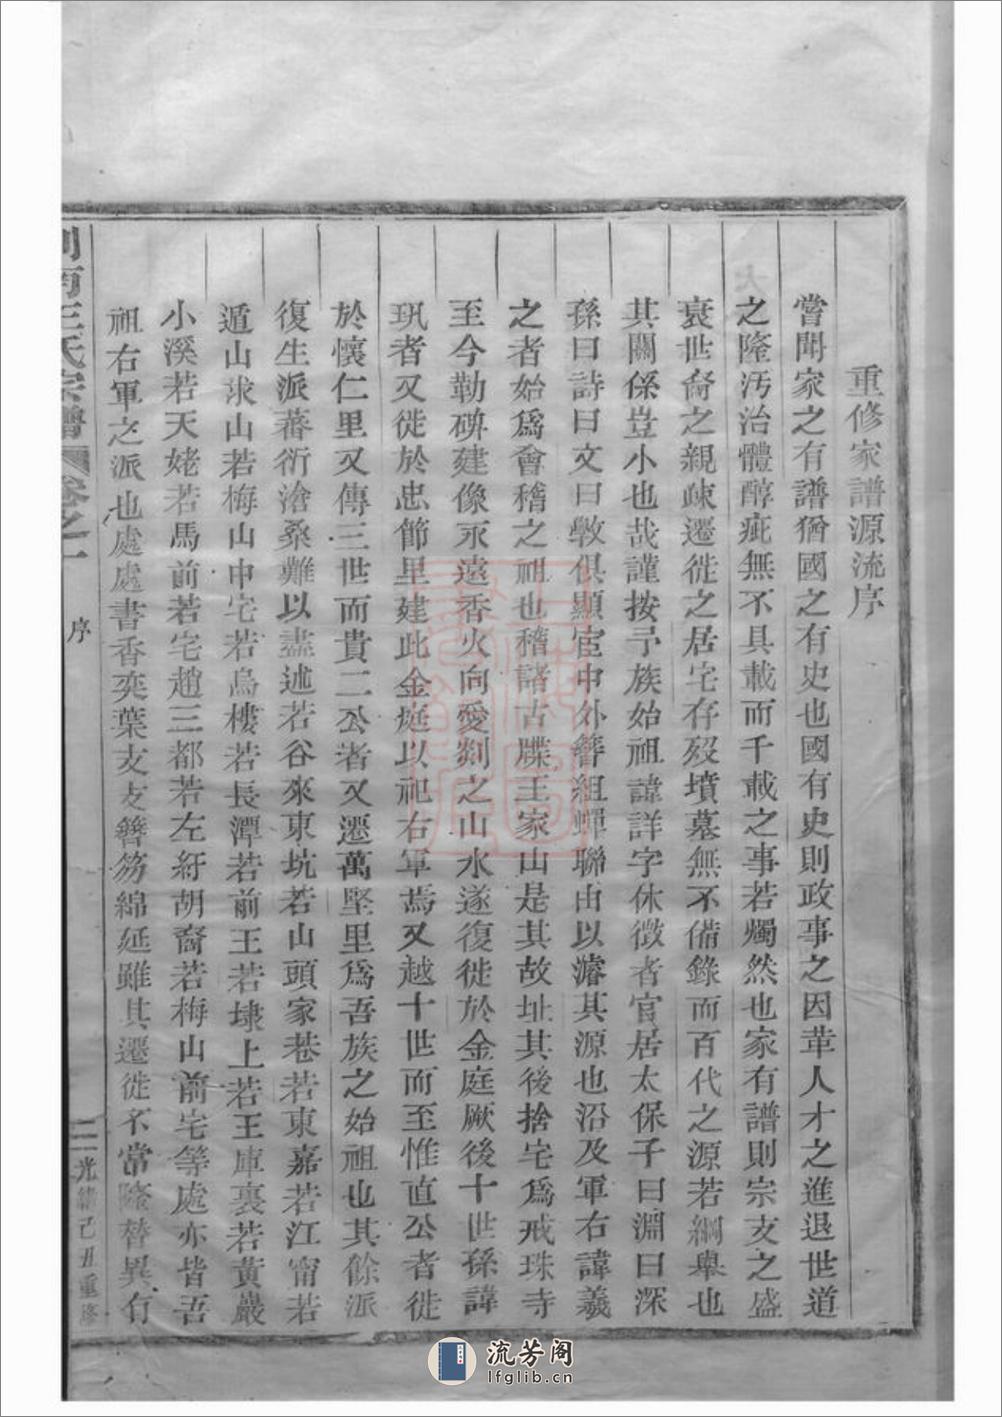 重修家譜源流序
嘗聞家之有譜猶國之有史也國有史則政事之因革人才之進退世道
之隆汚治體醇疵無不具載而千載之事若燭然也家有譜則宗支之盛
衰世裔之親疎遷徙之居宅存歿墳墓無不備錄而百代之源若綱舉也
其關係豈小也哉謹按予族始祖諱詳字休徵者官居太保子曰淵曰深
孫曰詩曰文曰斆俱顯宦中外簪組蟬聯由以濬其源也沿及軍右諱義
之者始爲會稽之祖也稽諸古牒王家山是其故址其後捨宅爲戒珠寺
至今勒碑建像永遠香火向愛剡之山水遂復徙於金庭厥後十世孫諱
玑者又徙於忠節里建此金庭以祀右軍焉又越十世而至惟直公者徙
於懷仁里又傳三世而貴二公者又遷萬堅里爲吾族之始祖也其餘派
復生派蕃衍滄桑難以盡述若谷來東坑若山頭家巷若東嘉若江甯若
遁山求山若梅山中宅若烏樓若長潭若前王若埭上若王庫裏若黃巖
小溪若天姥若馬前若宅趙三都若左紆胡裔若梅山前宅等處亦皆吾
祖右軍之派也處處書香奕葉支支簪笏綿延雖其遷徙不常隆替異有
南王氏宗譜 卷之一 序 二 光緒己丑重修
流芳阁
lfglib.cn